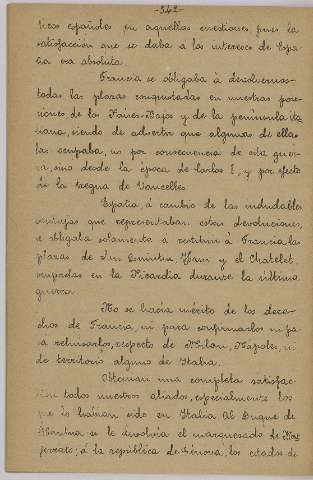 -342-
ticos españoles en aquellas cuestiones pues la
satisfacción que se daba á los intereses de Espa-
ña era absoluta.
Francia se obligaba á devolvernos
todas las plazas conquistadas en nuestras pose-
siones de los Paises-Bajos y de la peninsula ita-
liana, siendo de advertir que algunas de ellas
las ocupaba, no por consecuencia de esta gue-
rra, sino desde la época de Carlos I, y por efecto
de la tregua de Vaucelles.
España, á cambio de las indudables
ventajas que representaban estas devoluciones,
se obligaba solamente á restituir á Francia las
plazas de San Quintin, Ham y el Chatelet,
ocupadas en la Picardia durante la última
guerra.
No se hacia mérito de los dere-
chos de Francia, ni para confirmarlos ni pa-
ra rehusarlos, respecto de Milan, Napoles, ni
de territorio alguno de Italia.
Obtenian una completa satisfac-
ción todos nuestros aliados, especialmente los
que lo habian sido en Italia. Al Duque de
Mantua se le devolvia el marquesado de Mon-
ferrato; á la república de Génova, los estados de